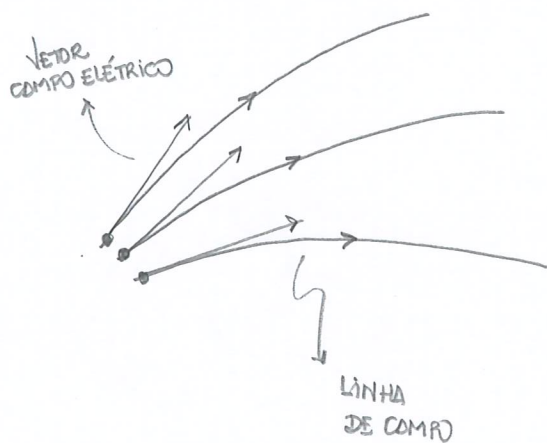 VETOR
CAMPO ELÉTRICO
LINHA
DE CAMPO